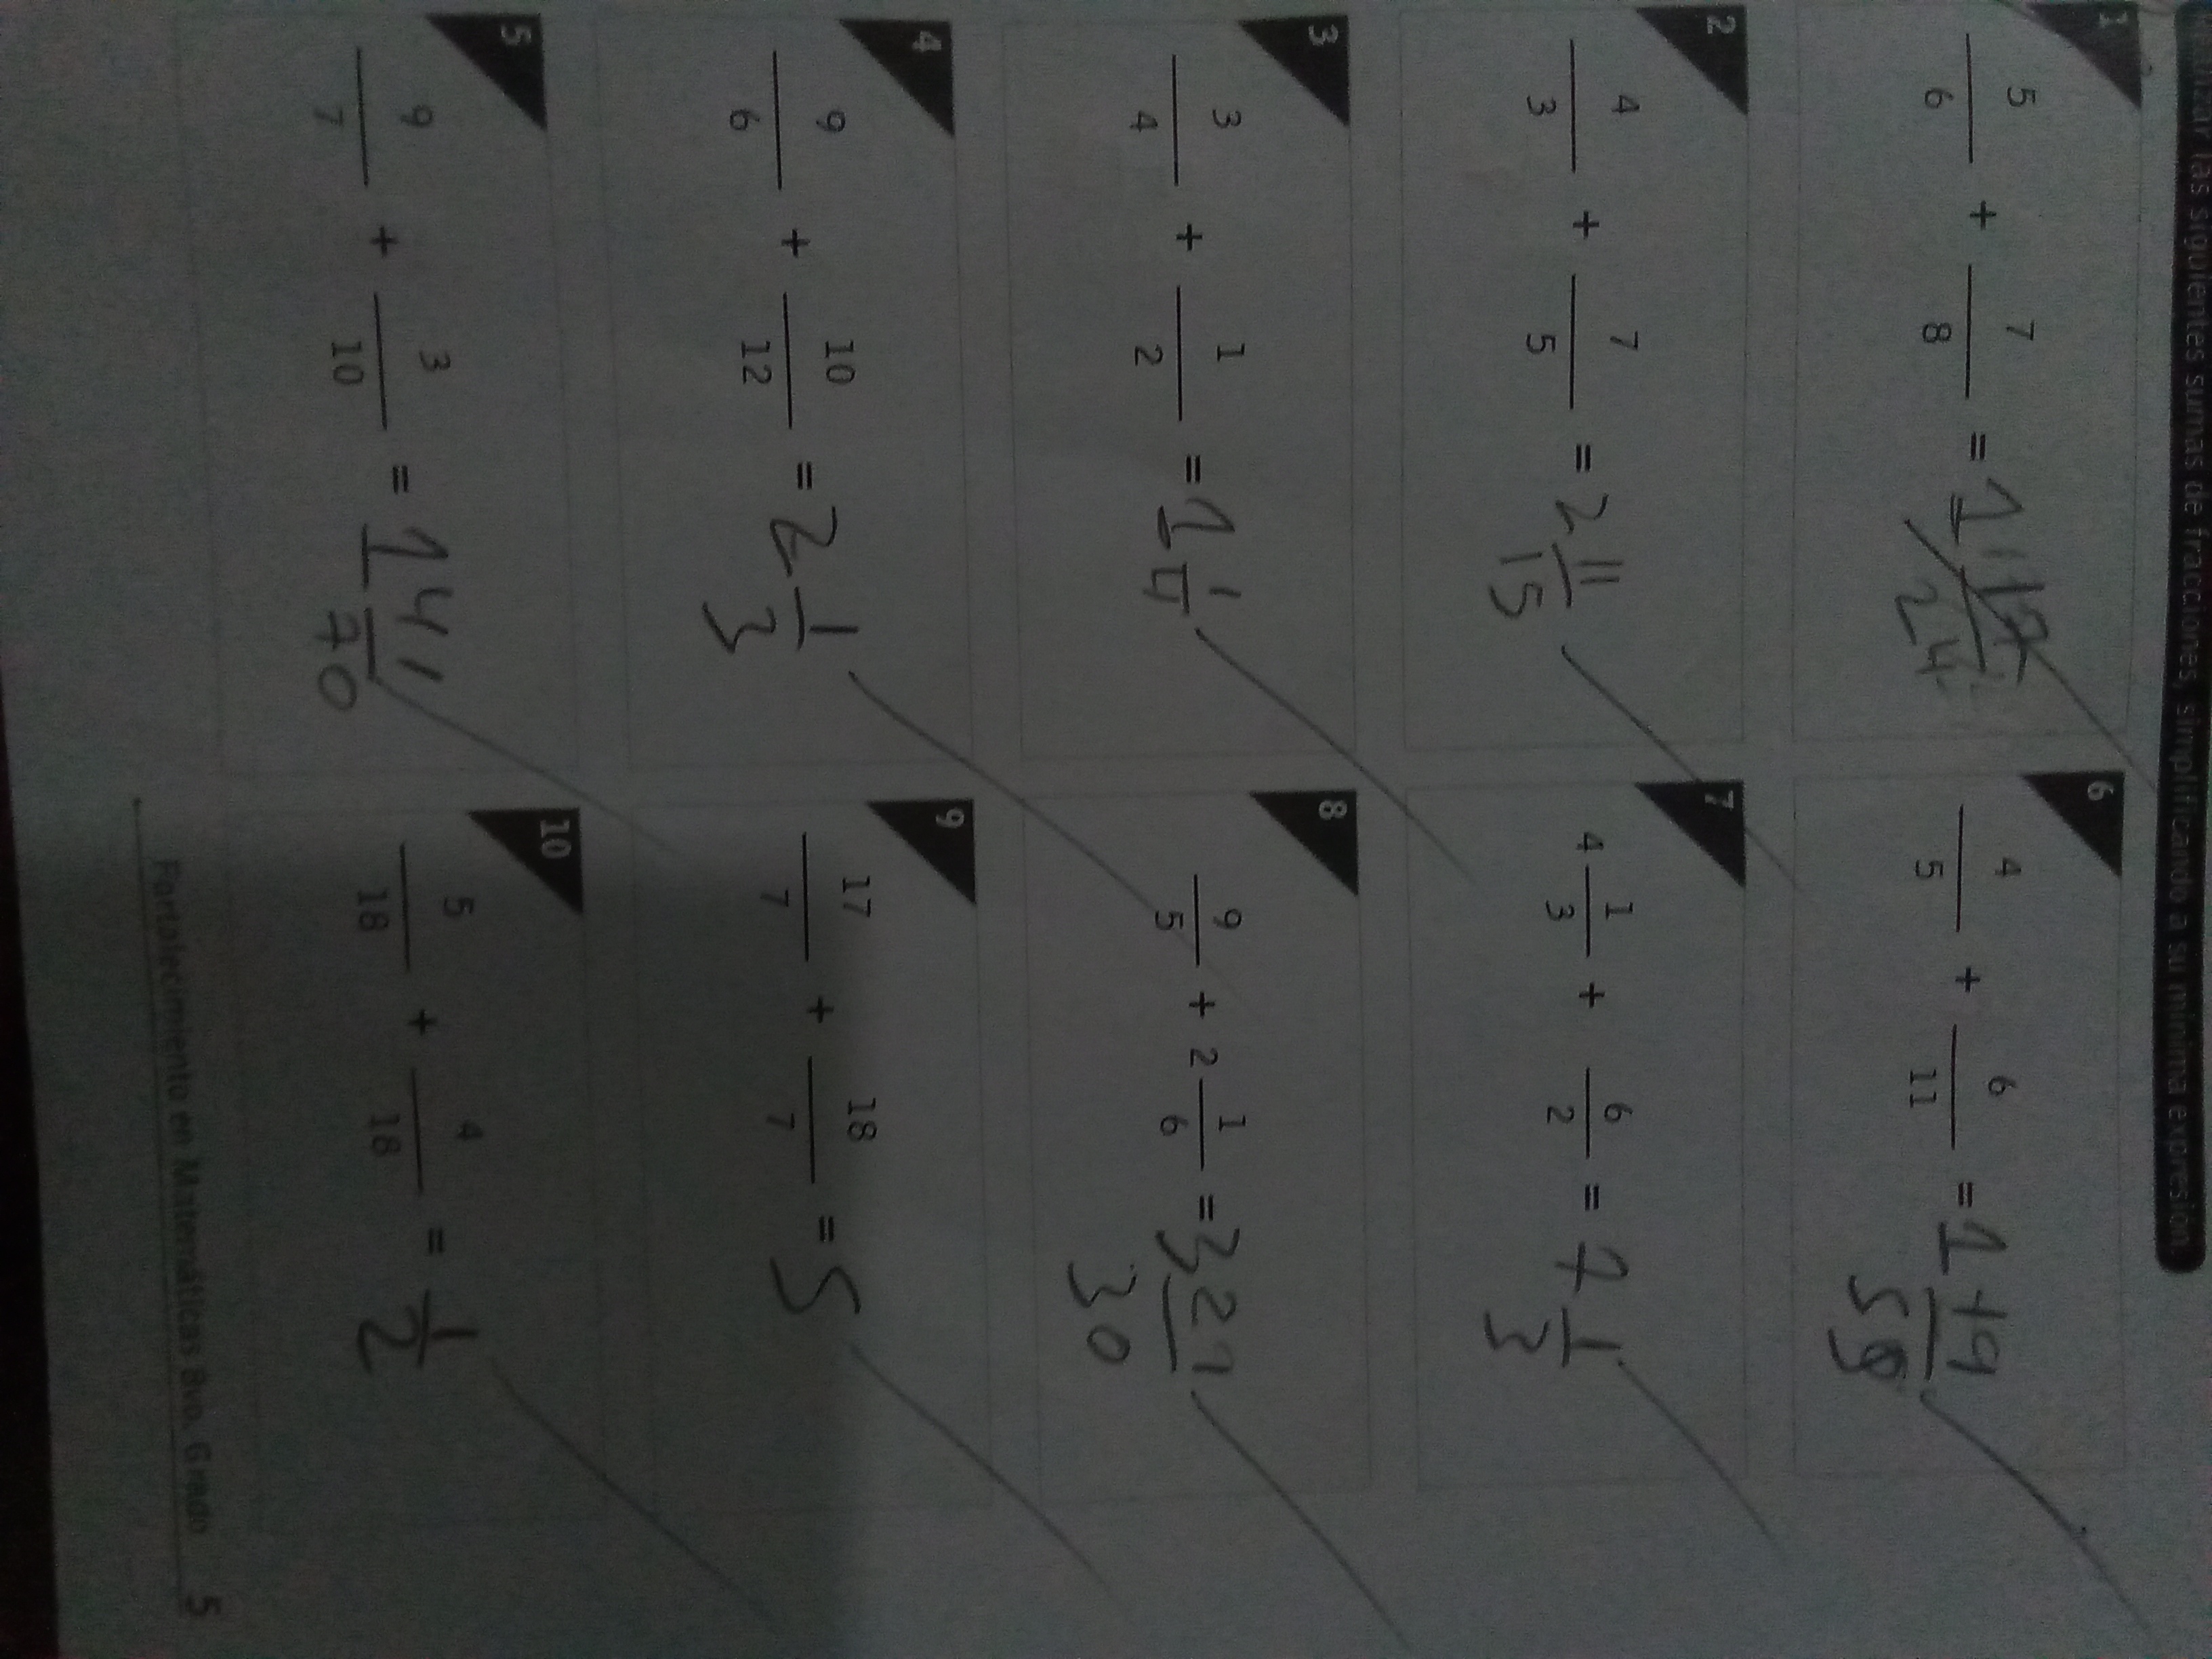 las siguientes sumas de fracciones, simplificando a su mínima expresión.
1
5/6 + 7/8 = 1 17/24
2
4/3 + 7/5 = 2 11/15
3
3/4 + 1/2 = 1 1/4
4
9/6 + 10/12 = 2 1/3
5
9/7 + 3/10 = 1 41/70
6
4/5 + 6/11 = 1 19/55
7
4 1/3 + 6/2 = 7 1/3
8
9/5 + 2 1/6 = 3 29/30
9
17/7 + 18/7 = 5
10
5/18 + 4/18 = 1/2
Fortalecimiento en Matemáticas 8vo. Grado 5